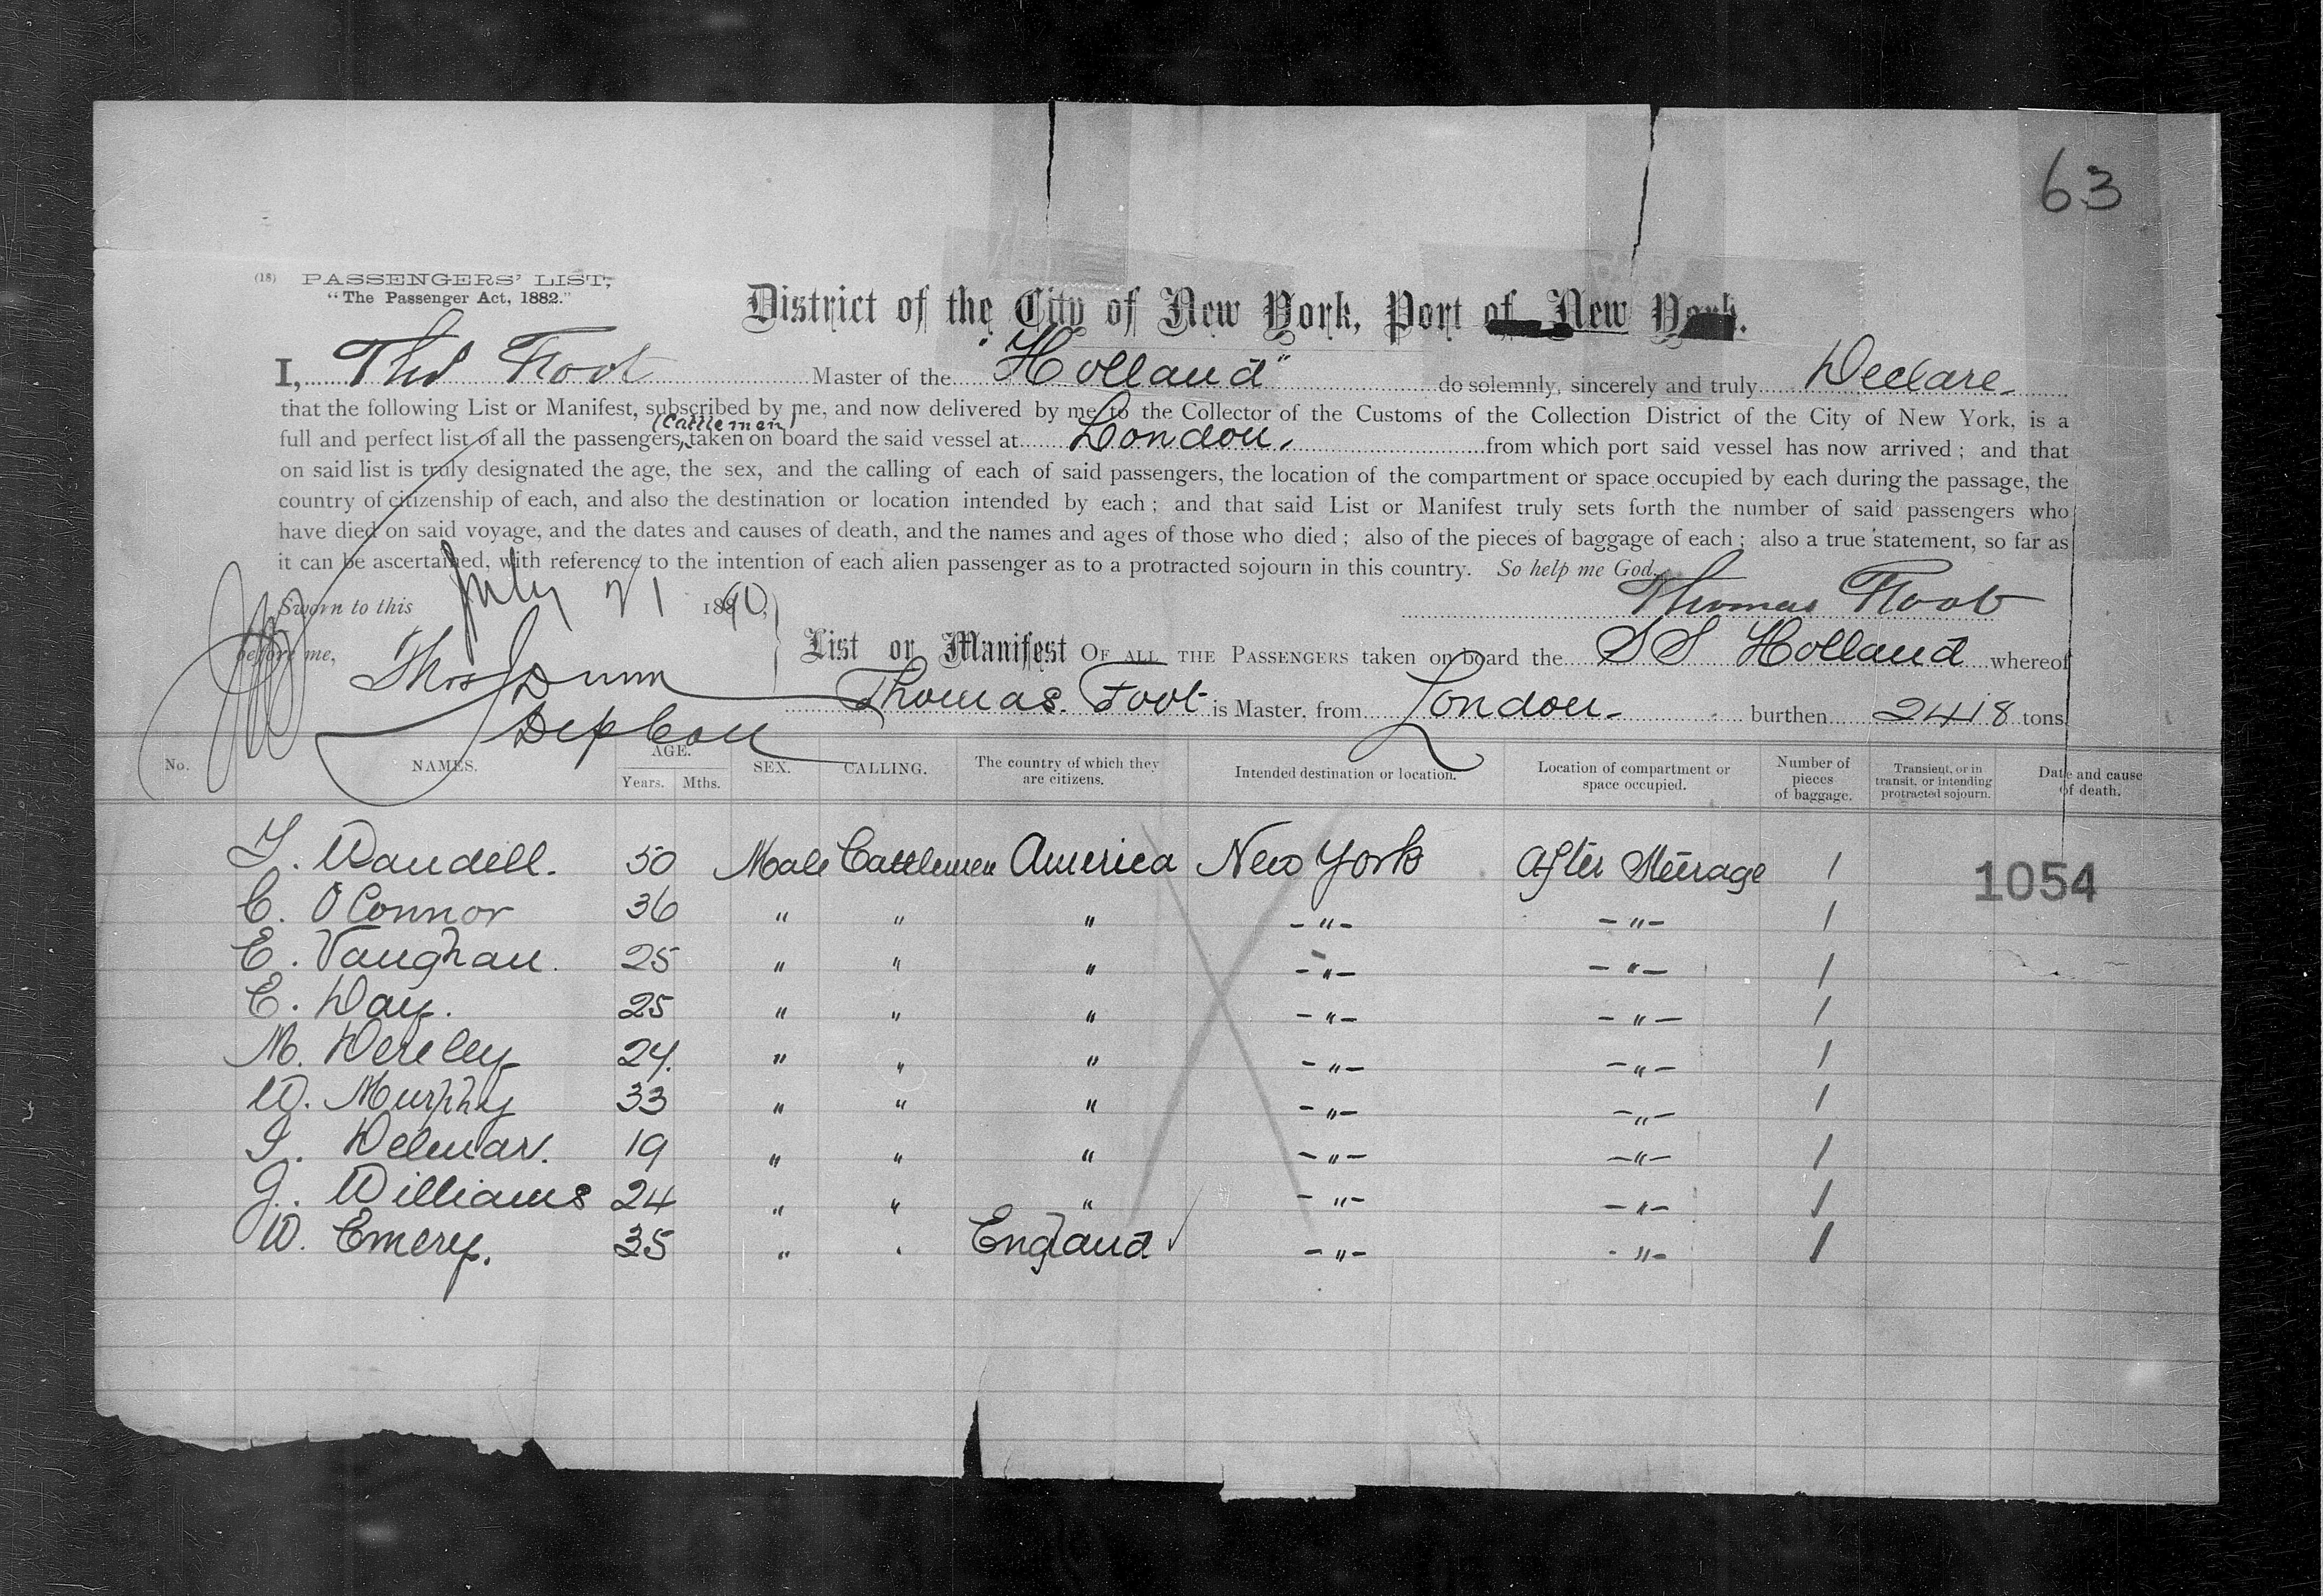 63
(18) PASSENGERS' LIST,
"The Passenger Act, 1882."
District of the City of New York, Port of New York.
I, Thos Foot Master of the "Holland" do solemnly, sincerely and truly Declare
that the following List or Manifest, subscribed by me, and now delivered by me to the Collector of the Customs of the Collection District of the City of New York, is a
(Cattlemen)
full and perfect list of all the passengers, taken on board the said vessel at London. from which port said vessel has now arrived; and that
on said list is truly designated the age, the sex, and the calling of each of said passengers, the location of the compartment or space occupied by each during the passage, the
country of citizenship of each, and also the destination or location intended by each; and that said List or Manifest truly sets forth the number of said passengers who
have died on said voyage, and the dates and causes of death, and the names and ages of those who died; also of the pieces of baggage of each; also a true statement, so far as
it can be ascertained, with reference to the intention of each alien passenger as to a protracted sojourn in this country. So help me God.
Sworn to this July 21 1890, Thomas Foot
before me, Thos Dunn
Dep Coll
List or Manifest OF ALL THE PASSENGERS taken on board the S S Holland whereof
Thomas. Foot is Master, from London. burthen 2418 tons
No. NAMES. AGE. Years. Mths. SEX. CALLING. The country of which they are citizens. Intended destination or location. Location of compartment or space occupied. Number of pieces of baggage. Transient, or in transit, or intending protracted sojourn. Date and cause of death.
Wandell. 50 Male Cattlemen America New York After Steerage 1
1054
C. O'Connor 36 " " " -"- -"- 1
E. Vaughan. 25 " " " -"- -"- 1
E. Day. 25 " " " -"- -"- 1
M. Dereley 24. " " " -"- -"- 1
W. Murphy 33 " " " -"- -"- 1
Delmar. 19 " " " -"- -"- 1
J. Williams 24 " " " -"- -"- 1
W. Emery. 35 " " England -"- -"- 1